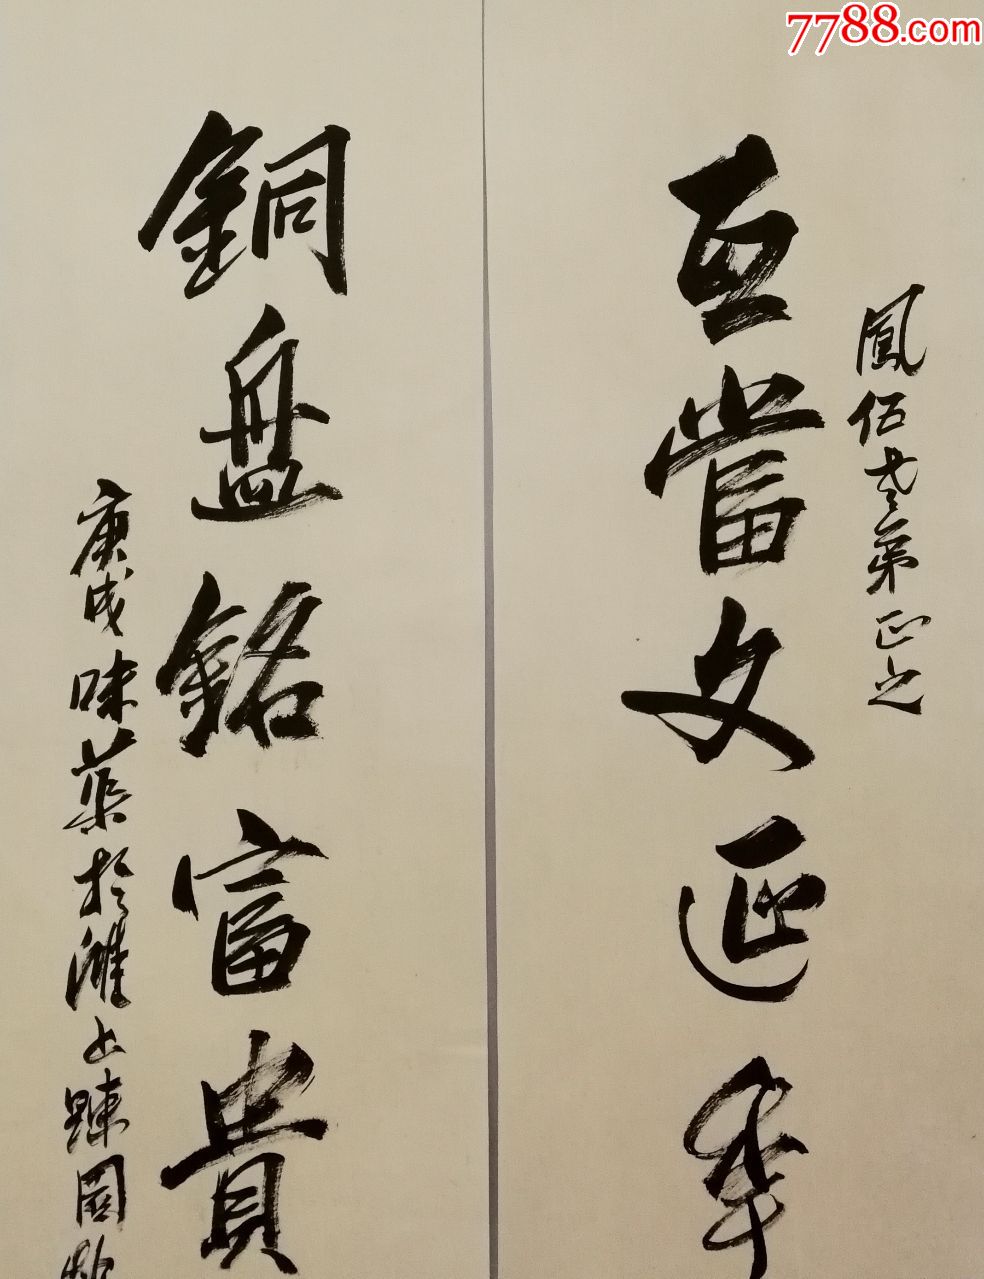 鳳伯老弟正之
瓦當文延年
銅盤銘富貴
庚戌味蕖於濰上疎園
7788.com